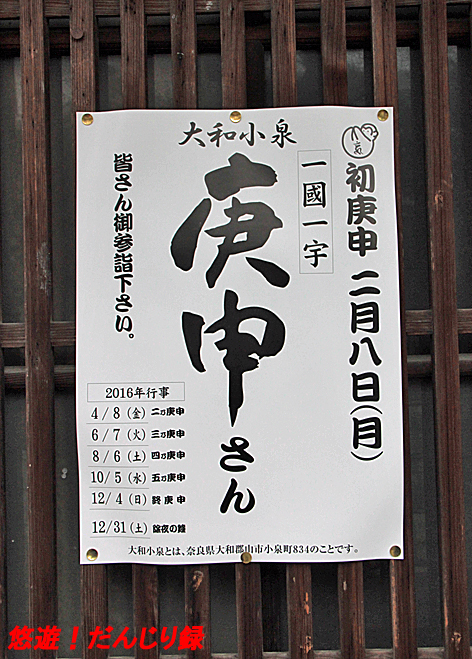 初庚申 二月八日(月)
大和小泉
一國一宇
庚申さん
皆さん御参詣下さい。
2016年行事
4/8(金) 二ノ庚申
6/7(火) 三ノ庚申
8/6(土) 四ノ庚申
10/5(水) 五ノ庚申
12/4(日) 終庚申
12/31(土) 除夜の鐘
大和小泉とは、奈良県大和郡山市小泉町834のことです。
悠遊!だんじり録